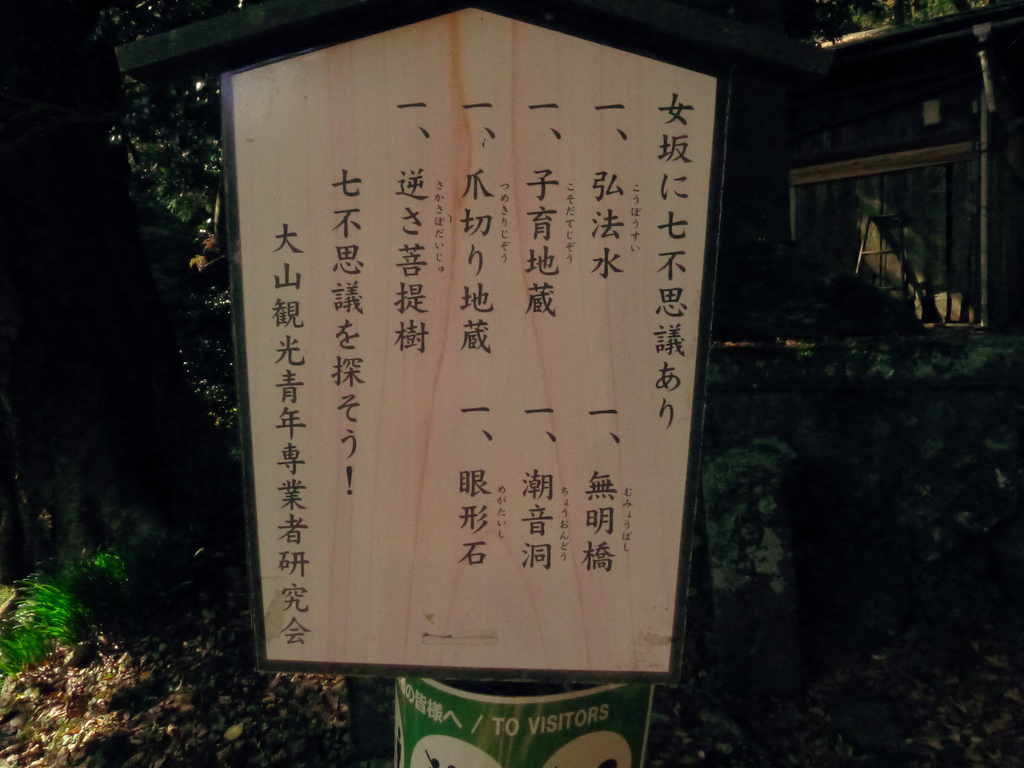 女坂に七不思議あり
一、弘法水
こうぼうすい
一、無明橋
むみょうばし
一、子育地蔵
こそだてじぞう
一、潮音洞
ちょうおんどう
一、爪切り地蔵
つめきりじぞう
一、眼形石
めがたいし
一、逆さ菩提樹
さかさぼだいじゅ
七不思議を探そう！
大山観光青年専業者研究会
の皆様へ / TO VISITORS